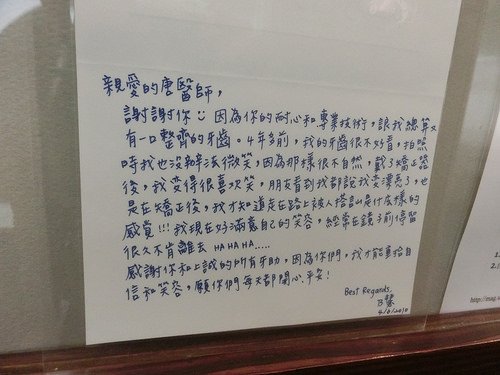 親愛的唐醫師，
謝謝你☺ 因為你的耐心和專業技術，讓我總算又
有一口整齊的牙齒。4年多前，我的牙齒很不好看，拍照
時我也沒辦法微笑，因為那樣很不自然，戴了矯正器
後，我變得很喜歡笑，朋友看到我都說我變漂亮了，也
是在矯正後，我才知道走在路上被人搭訕是什麼樣的
感覺!!! 我現在好滿意自己的笑容，經常在鏡子前停留
很久不肯離去 HA HA HA.....
感謝你和上誠的所有牙助，因為你們，我才能重拾自
信和笑容，願你們每天都開心、平安！
Best Regards,
4/6/2010
1.
2.
http://mag.